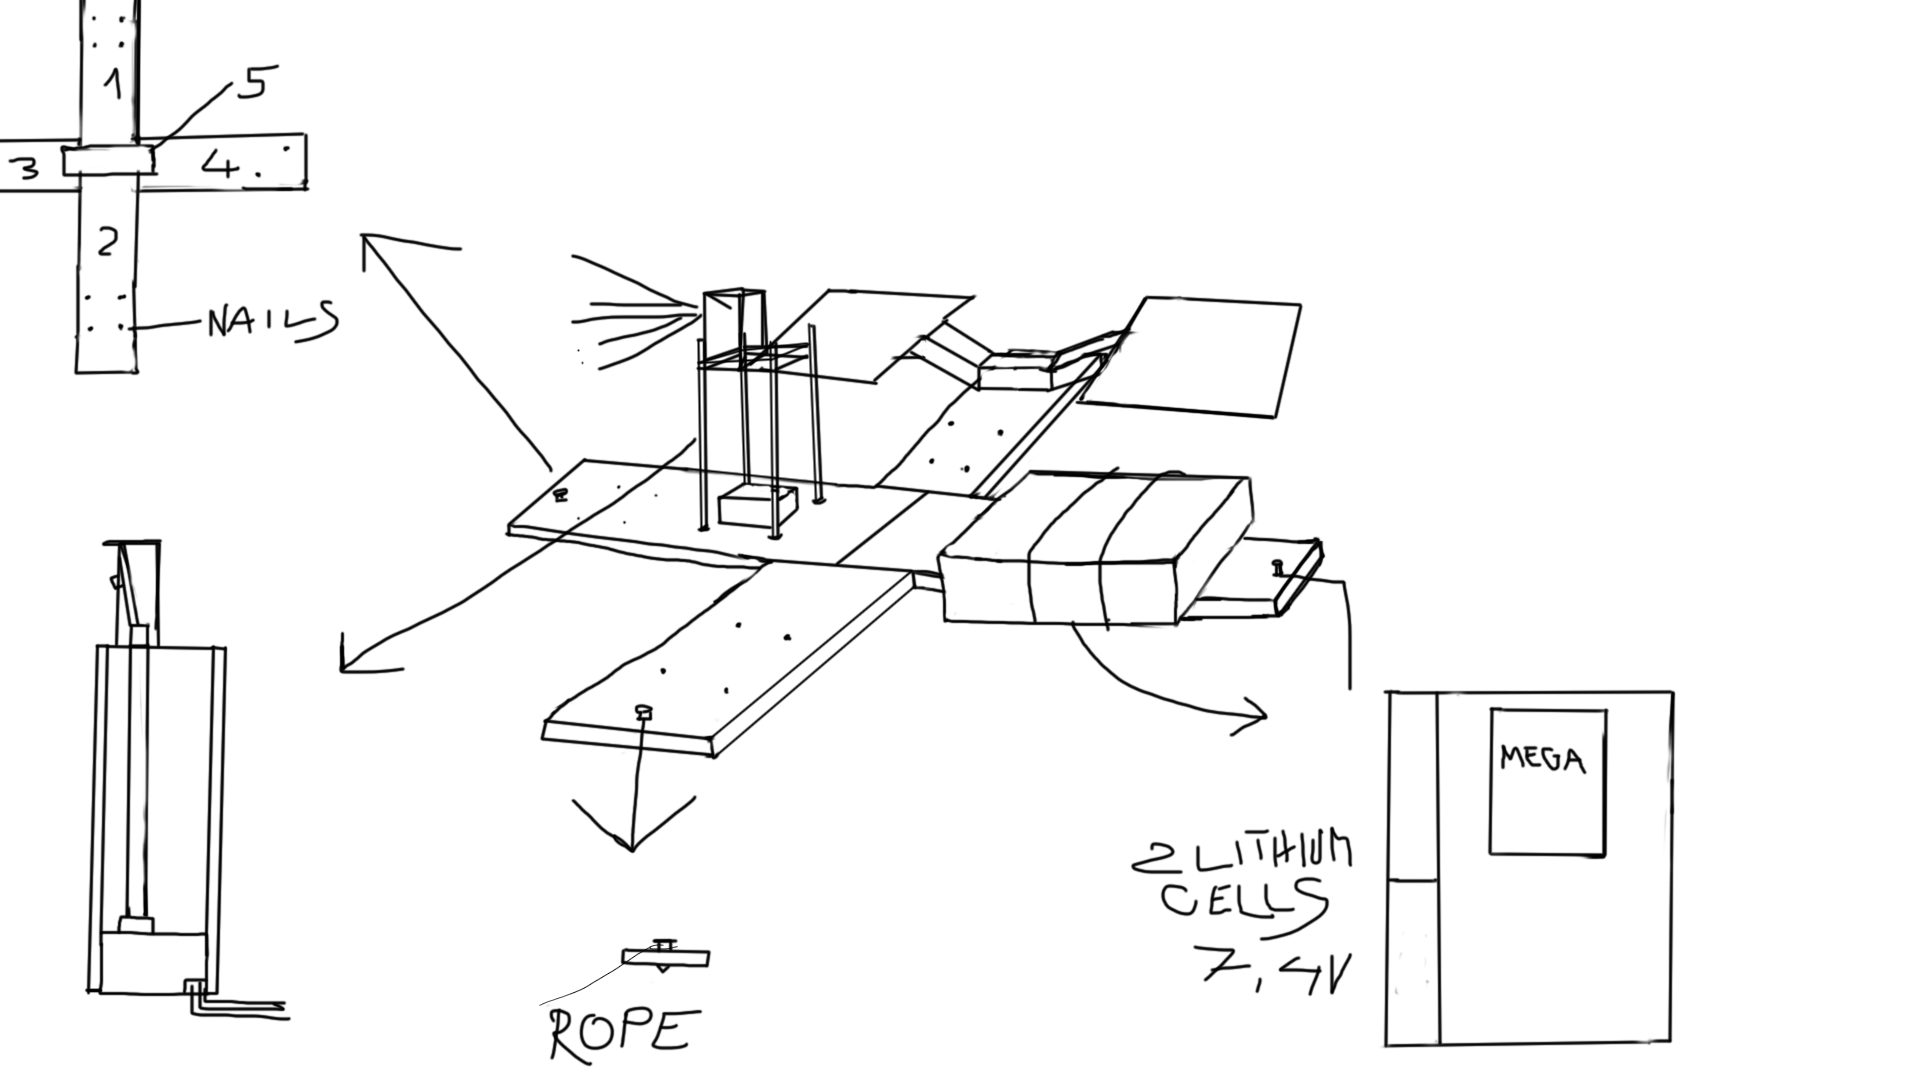 1
5
3
4
2
NAILS
MEGA
2 LITHIUM
CELLS
7,4V
ROPE